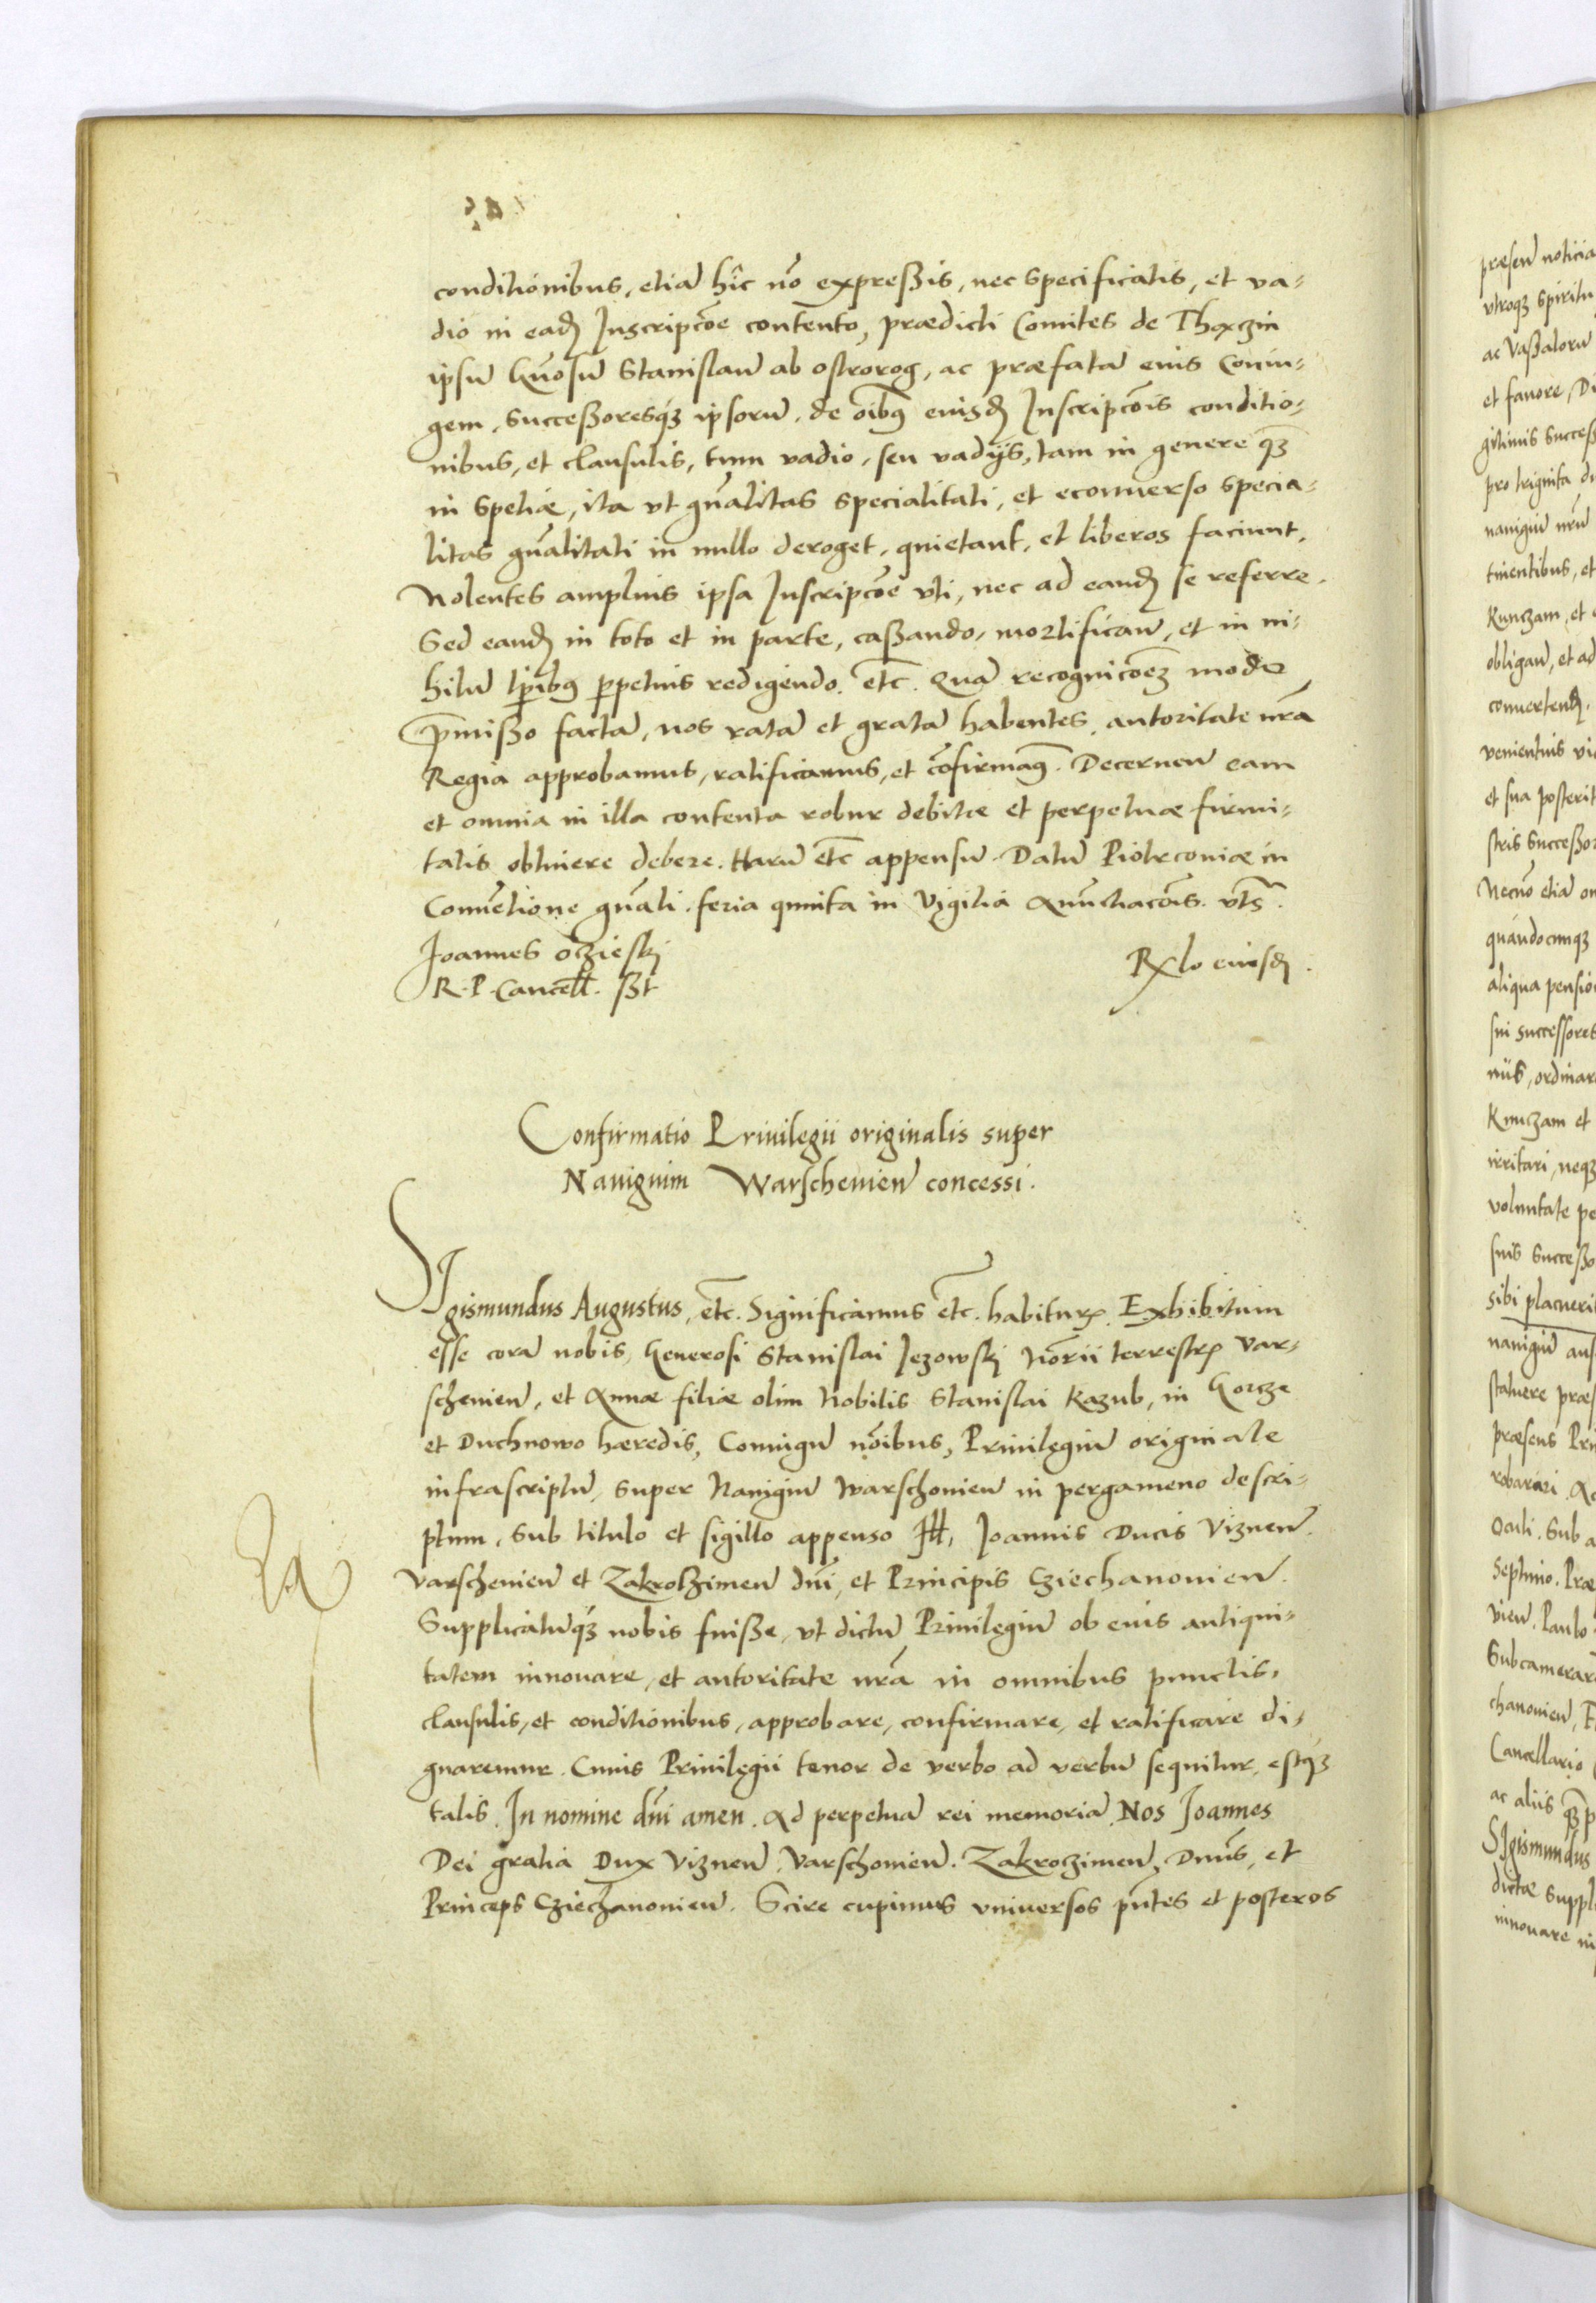 conditionibus, etiã hîc nõ expreßis, nec specificatis, et va-
dio in eadꝫ Inscripcõe contento, prædicti Comites de Thaxzin
ipsũ Gñosũ Stanislaũ ab ostrorog, ac præfatã eius Coniu-
gem, Succeßoresqꝫ ipsorũ, de oĩbꝰ eiusdꝫ Inscripcõis conditio-
nibus, et clausulis, tum vadio, seu vadijs, tam in genere qꝫ
in spetiæ, ita vt gñalitas specialitati, et econuerso specia-
litas gñalitati in nullo deroget, quietant, et liberos faciunt,
Nolentes amplius ipsa Inscripcõe vti, nec ad eandꝫ se referre.
Sed eandꝫ in toto et in parte, caßando, mortificañ, et in ni-
hilũ tp̃ribꝰ ꝑpetuis redigendo. etc̃. Quã recognicõeꝫ modo
p̃mißo factã, nos ratã et gratã habentes, autoritate nr̃a
Regia approbamus, ratificamus, et cõfirmamꝰ. Decerneñ eam
et omnia in illa contenta robur debitæ et perpetuæ firmi-
tatis obtinere debere. Harũ etc̃ appensũ. Datũ Piotrconiæ in
Conuẽtione gñali. feria quinta in Vigilia Anũctiacõis. vts̃.
Joannes oczieskj
R. P. Cancell̃. sßt
Rxlo eiusdꝫ.
Confirmatio Priuilegii originalis super
Nauiguim Warscheuieñ concessi.
SIgismundus Augustus, etc̃. Significamus etc̃. habiturꝭ. Exhibitum
esse corã nobis, Generosi Stanislai Jezowskj Nõrii terrestrꝭ Var-
scheuieñ, et Annæ filiæ olim Nobilis Stanislai Kazub, in Gorcze
et Duchnowo hæredis, Coniugũ nõibus, Priuilegiũ originale
infrascriptũ, super Nauigiũ Warschouieñ in pergameno descri-
ptum, sub titulo et sigillo appenso Ill̃, Joannis Ducis Vizneñ.
Varscheuieñ et Zakrotzimeñ dñi, et Principis Cziechanouieñ.
Supplicatũqꝫ nobis fuiße, vt dictũ Priuilegiũ ob eius antiqui-
tatem innouare, et autoritate nr̃a in omnibus punctis,
clausulis, et conditionibus, approbare, confirmare, et ratificare di-
gnaremur. Cuius Priuilegii tenor de verbo ad verbũ sequitur, estqꝫ
talis. In nomine dñi amen. Ad perpetuã rei memoriã. Nos Joannes
Dei gratia Dux Vizneñ, Varschouieñ. Zakroczimeñ, Dnũs, et
Princeps Cziechanouieñ. Scire cupimus vniuersos pñtes et posteros